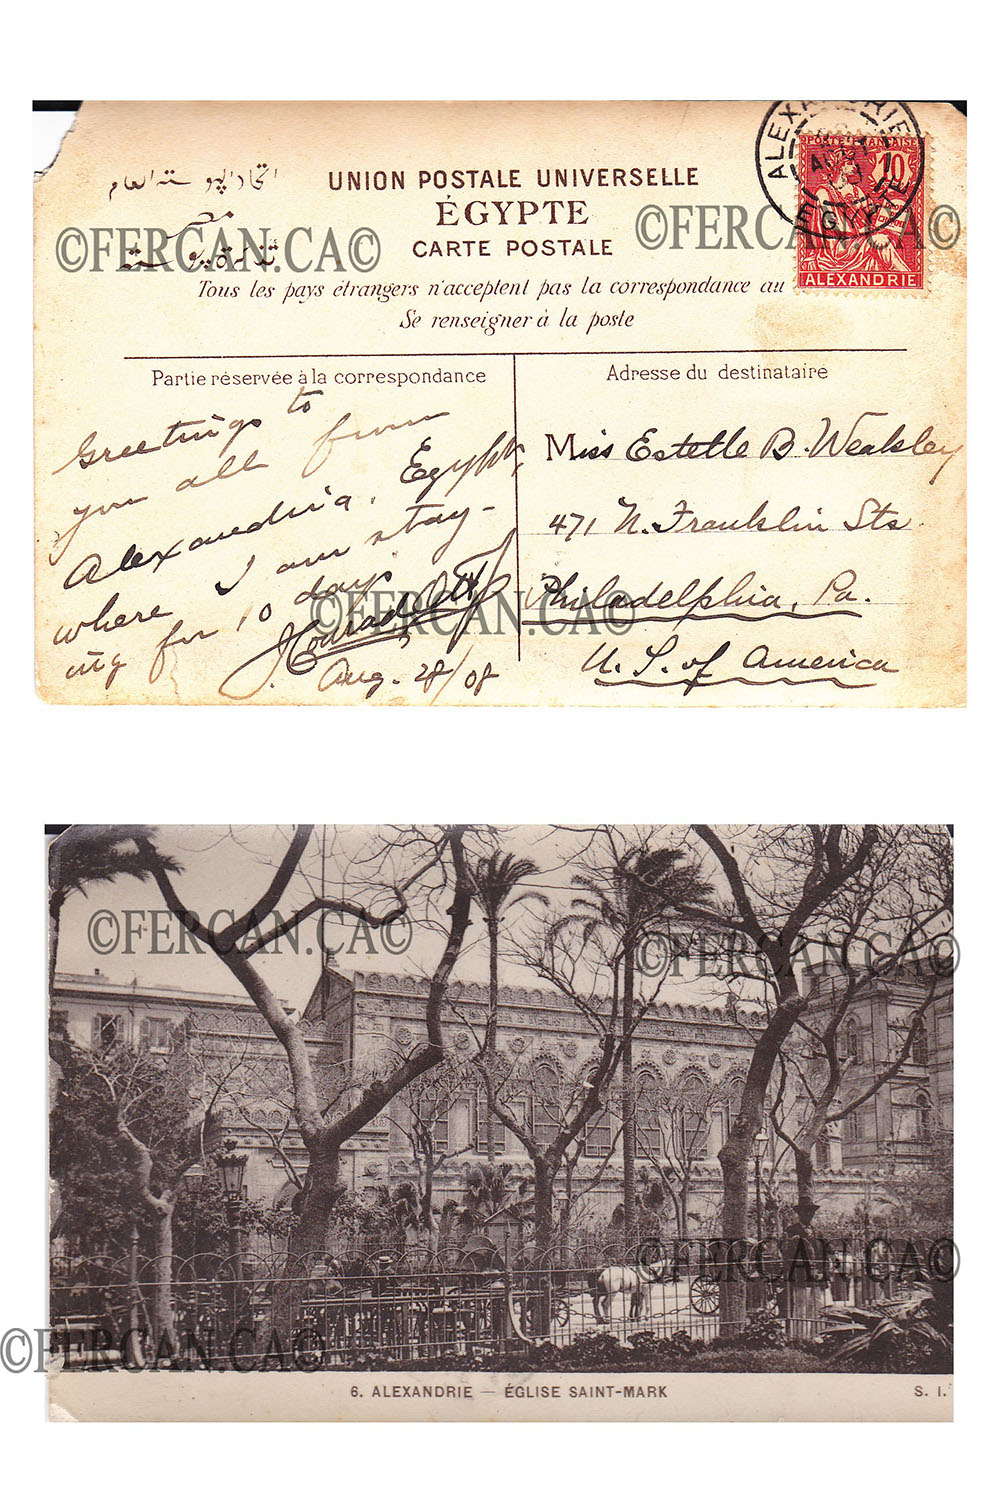 اتحاد البوسته العام
UNION POSTALE UNIVERSELLE
مصر
ÉGYPTE
تذكرة بوسته
CARTE POSTALE
Tous les pays étrangers n'acceptent pas la correspondance au
Se renseigner à la poste
ALEXANDRIE
EGYPTE
POSTE FRANÇAISE
10
ALEXANDRIE
Partie réservée à la correspondance
Greetings to
you all from
Alexandria, Egypt,
where I am stay-
ing for 10 days.
Aug. 28/08
Adresse du destinataire
Miss Estelle B. Weaksley
471 N. Franklin Sts
Philadelphia, Pa.
U. S. of America
©FERCAN.CA©
©FERCAN.CA©
©FERCAN.CA©
©FERCAN.CA©
©FERCAN.CA©
©FERCAN.CA©
©FERCAN.CA©
6. ALEXANDRIE — ÉGLISE SAINT-MARK
S. I.